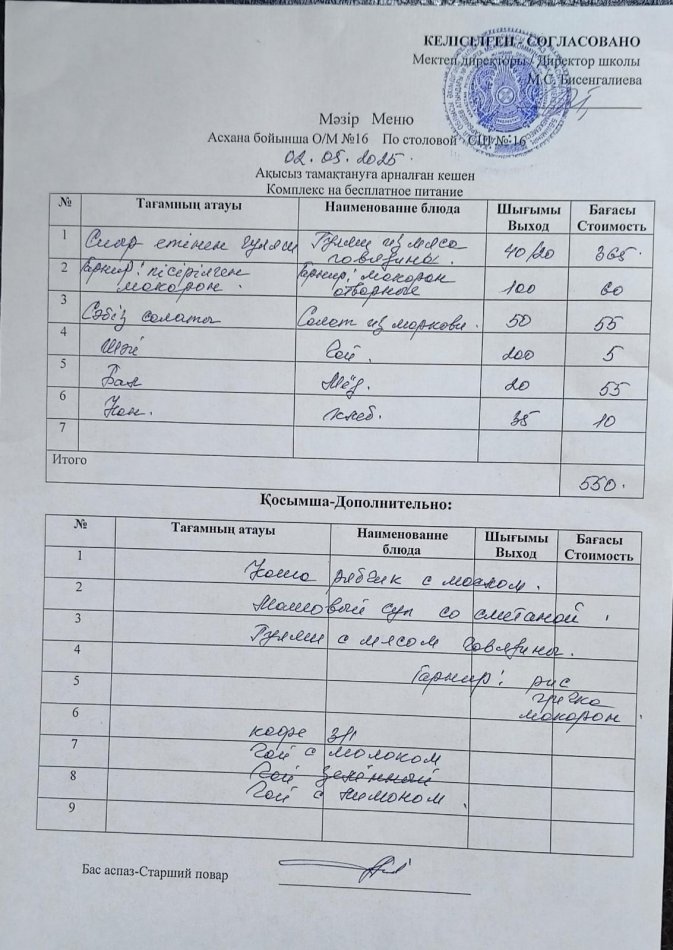 КЕЛІСІЛГЕН / СОГЛАСОВАНО
Мектеп директоры / Директор школы
М.С. Бисенгалиева
Мәзір Меню
Асхана бойынша О/М №16 По столовой СШ № 16
02.05.2025.
Ақысыз тамақтануға арналған кешен
Комплекс на бесплатное питание
№ Тағамның атауы Наименование блюда Шығымы Выход Бағасы Стоимость
1 Сиыр етінен гуляш Гуляш из мяса говядины. 40/20 365.
2 Гарнир: пісірілген мокорон. Гарнир: мокорон отворные 100 60
3 Сәбіз салаты Солот из моркови. 50 55
4 Шәй Чой. 200 5
5 Бал Мёд. 20 55
6 Нан. хлеб. 35 10
7
Итого 550.
Қосымша-Дополнительно:
№ Тағамның атауы Наименование блюда Шығымы Выход Бағасы Стоимость
1 Каша рябчик с маслом.
2 Машовый суп со сметаной.
3 Гуляш с мясом говядины.
4 Гарнир: рис
5 гречка
6 мокорон.
кофе 3/1
7 Чой с молоком
8 Чой зелённый
Чой с лимоном.
9
Бас аспаз-Старший повар